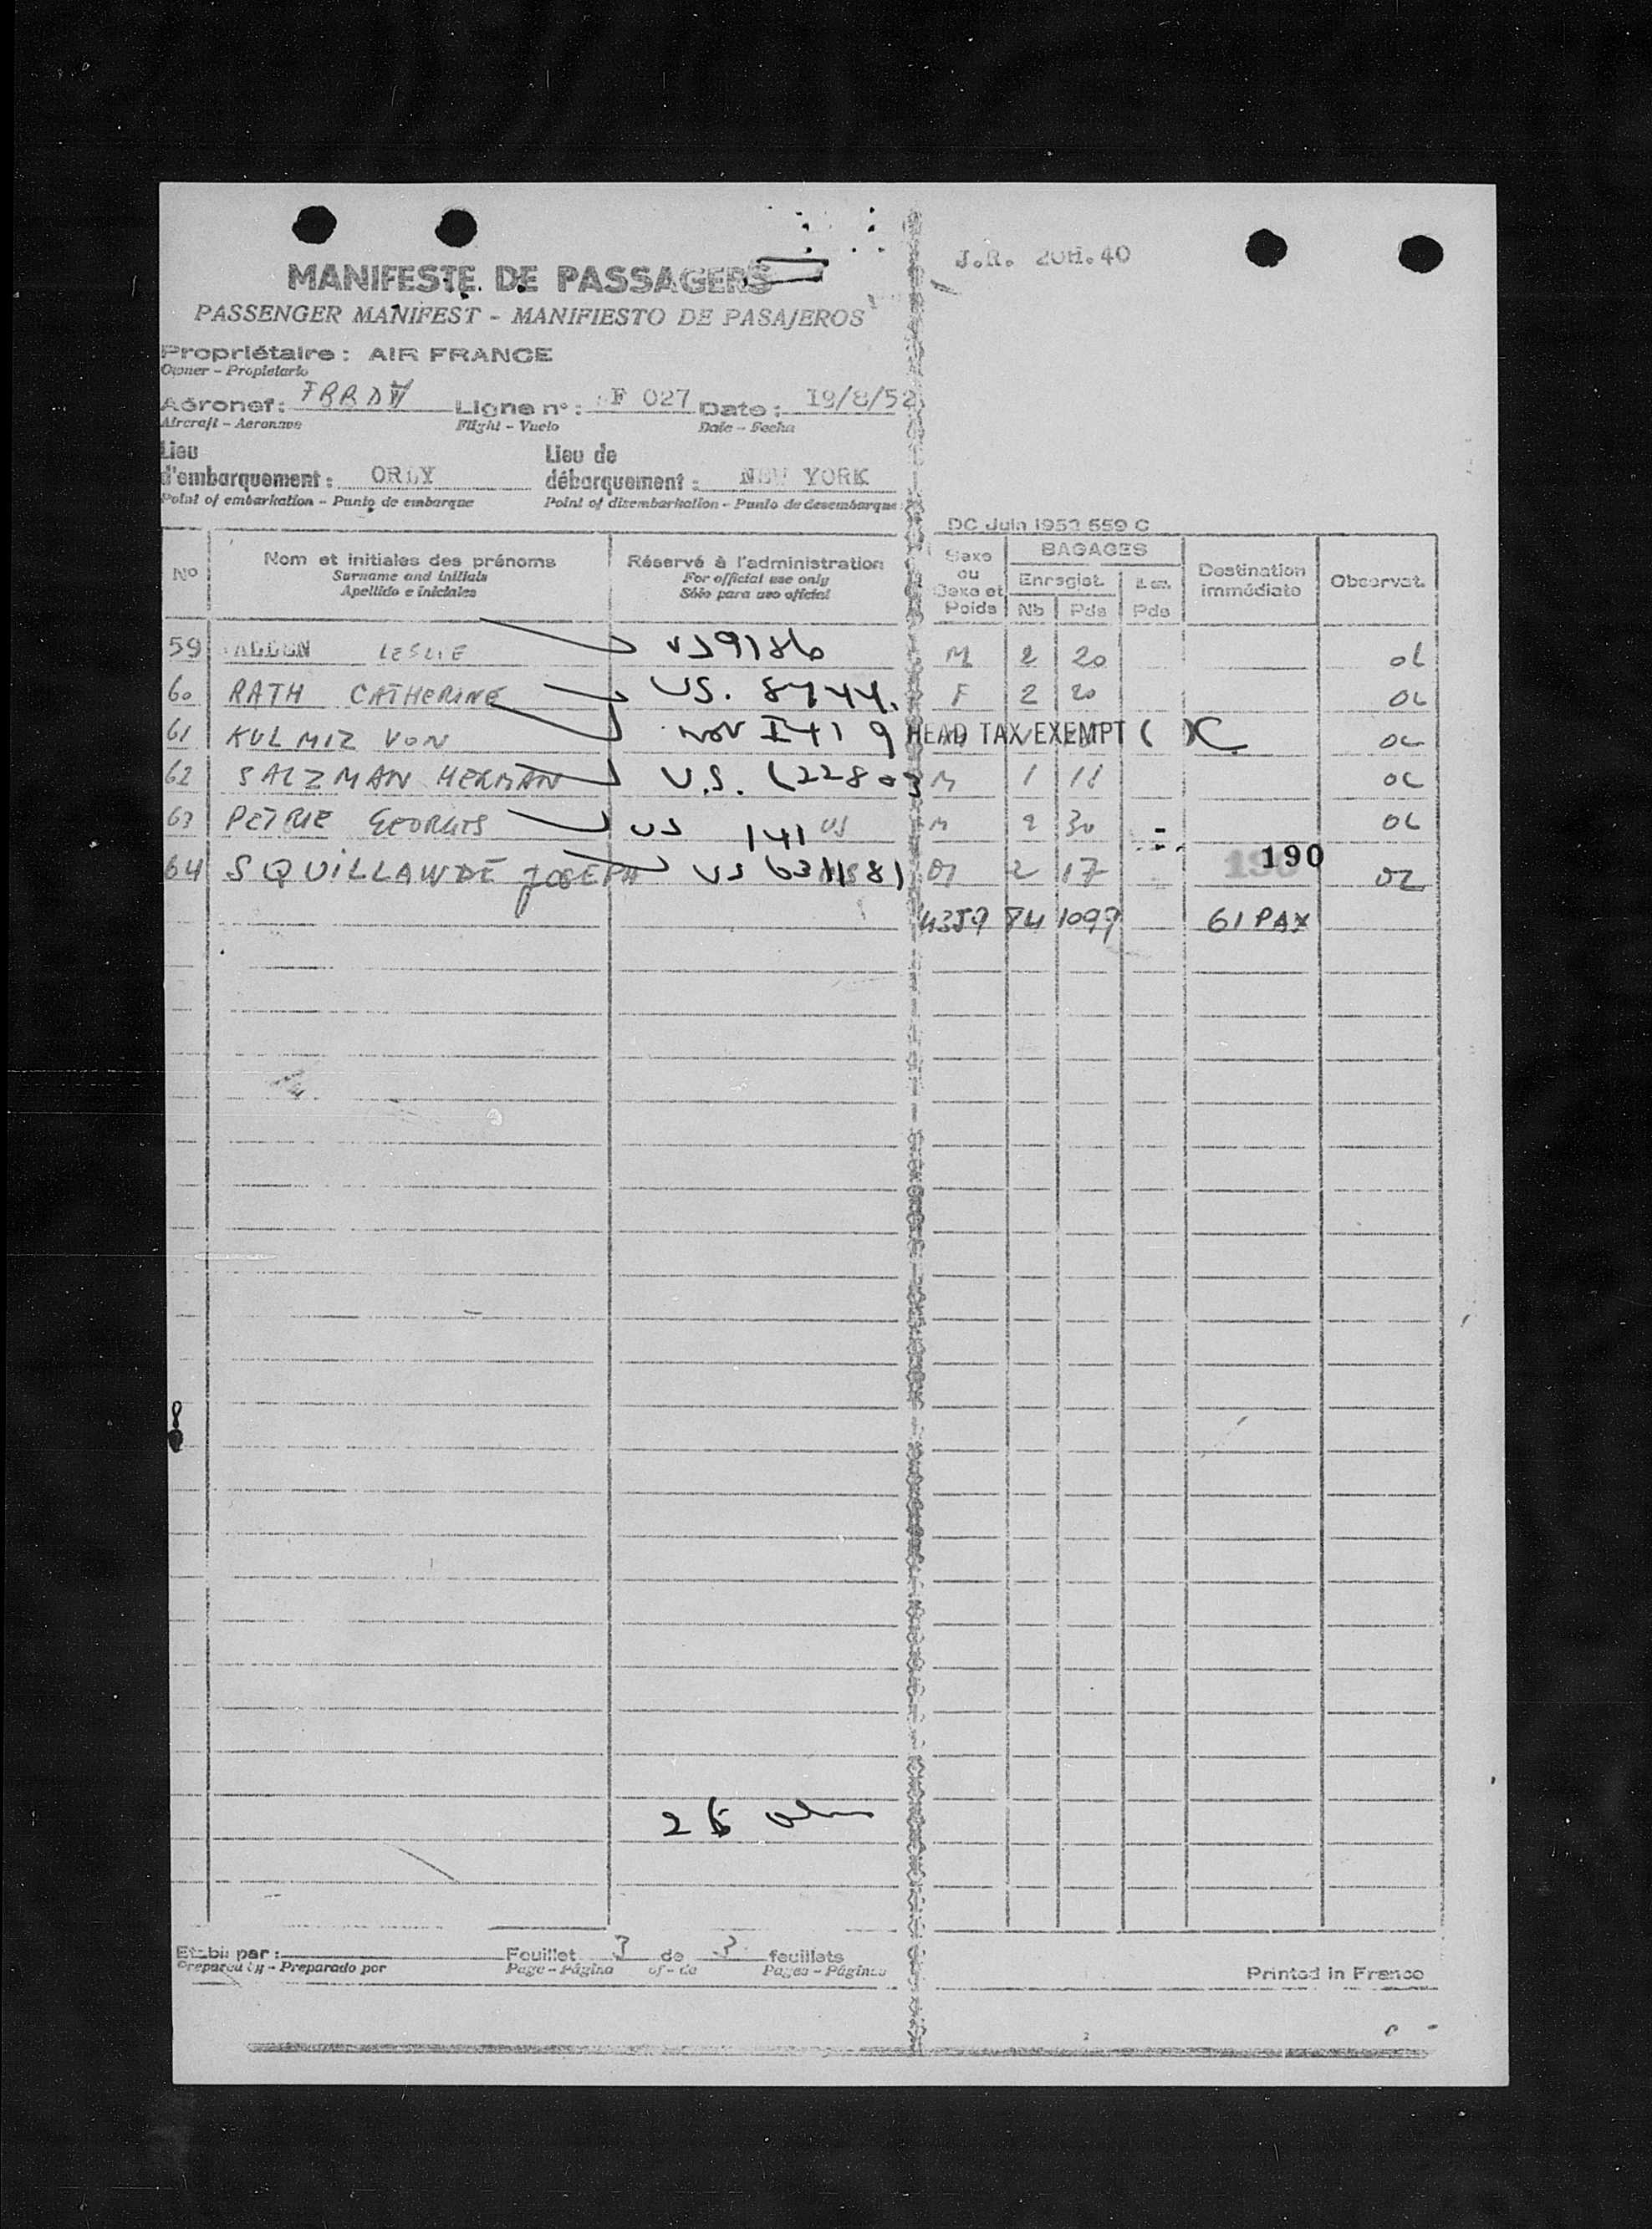 J.R. 20H.40
MANIFESTE DE PASSAGERS
PASSENGER MANIFEST - MANIFIESTO DE PASAJEROS
Propriétaire : AIR FRANCE
Owner - Propietario
Aéronef : Ligne n° : F 027 Date : 19/8/52
Aircraft - Aeronave Flight - Vuelo Date - Fecha
Lieu Lieu de
d'embarquement : ORLY débarquement : NEW YORK
Point of embarkation - Punto de embarque Point of disembarkation - Punto de desembarque
DC Juin 1952 559 C
No Nom et initiales des prénoms Réservé à l'administration Sexe BAGAGES Destination Observat.
Surname and initials For official use only ou Enregist. immédiate
Apellido e iniciales Sólo para uso oficial Sexe et Poids Nb Pds Pds
59 LESLIE US 9186 M 2 20
60 RATH CATHERINE US. 8744. F 2 20
61 KULMIZ VON HEAD TAX EXEMPT ( )
62 SALZMAN HERMAN U.S. M 1 11
63 PETRIE GEORGES US 141 US M 2 30
64 SQUILLANDE JOSEPH US M 2 17 190
4359 84 1099 61 PAX
Etabli par : Feuillet 3 de 3 feuillets
Prepared by - Preparado por Page - Página of - de Pages - Páginas
Printed in France